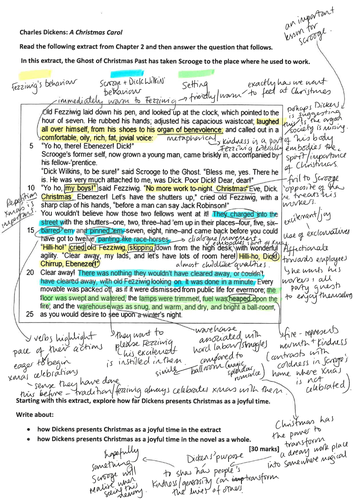 Charles Dickens: A Christmas Carol
an important
lesson for
scrooge.
Read the following extract from Chapter 2 and then answer the question that follows.
In this extract, the Ghost of Christmas Past has taken Scrooge to the place where he used to work.
Fezziwig's behaviour
Scrooge + Dick Wilkins'
behaviour
Setting
exactly how we want
to feel at Christmas
immediately warm to Fezziwig
friendly/warm
Old Fezziwig laid down his pen, and looked up at the clock, which pointed to the
hour of seven. He rubbed his hands; adjusted his capacious waistcoat; laughed
all over himself, from his shoes to his organ of benevolence; and called out in a
comfortable, oily, rich, fat, jovial voice:
metaphorical
kindness is a part of
Fezziwig's body
literally embodies the
spirit/importance
of Christmas
perhaps Dickens
is suggesting
society is missing
5 "Yo ho, there! Ebenezer! Dick!"
Scrooge's former self, now grown a young man, came briskly in, accompanied by
his fellow-'prentice.
"Dick Wilkins, to be sure!" said Scrooge to the Ghost. "Bless me, yes. There he
is. He was very much attached to me, was Dick. Poor Dick! Dear, dear!"
foil to Scrooge
opposite of
how he treats his
workers.
10 "Yo ho, my boys!" said Fezziwig. "No more work to-night. Christmas Eve, Dick.
Christmas, Ebenezer! Let's have the shutters up," cried old Fezziwig, with a
sharp clap of his hands, "before a man can say Jack Robinson!"
You wouldn't believe how those two fellows went at it! They charged into the
street with the shutters–one, two, three–had 'em up in their places–four, five, six–
15 barred 'em and pinned 'em–seven, eight, nine–and came back before you could
have got to twelve, panting like race-horses.
"Hilli-ho!" cried old Fezziwig, skipping down from the high desk, with wonderful
agility. "Clear away, my lads, and let's have lots of room here! Hilli-ho, Dick!
Chirrup, Ebenezer!"
almost childlike
excitement/joy
use of exclamatives
Affectionate
towards employees
to enjoy themselves
20 Clear away! There was nothing they wouldn't have cleared away, or couldn't
have cleared away, with old Fezziwig looking on. It was done in a minute. Every
movable was packed off, as if it were dismissed from public life for evermore; the
floor was swept and watered, the lamps were trimmed, fuel was heaped upon the
fire; and the warehouse was as snug, and warm, and dry, and bright a ball-room,
25 as you would desire to see upon a winter's night.
verbs highlight
pace of their actions
eager to begin
xmas celebrations
they want to
please Fezziwig
his excitement
is instilled in them
simile
warehouse
associated with
word labour
compared to
ballroom
fire - represents
warmth + kindness
(contrasts with
coldness in Scrooge's
home where xmas
is not
celebrated)
sense they have done
this before - tradition
Fezziwig always celebrates xmas with them
Starting with this extract, explore how far Dickens presents Christmas as a joyful time.
Write about:
• how Dickens presents Christmas as a joyful time in the extract
• how Dickens presents Christmas as a joyful time in the novel as a whole.
[30 marks]
Christmas has
the power to
transform
a dreary work place
into somewhere magical
hopefully
something
Scrooge will
realise when
seeing this
memory
Dickens' purpose
to show how people's
kindness/generosity can transform
the lives of others.